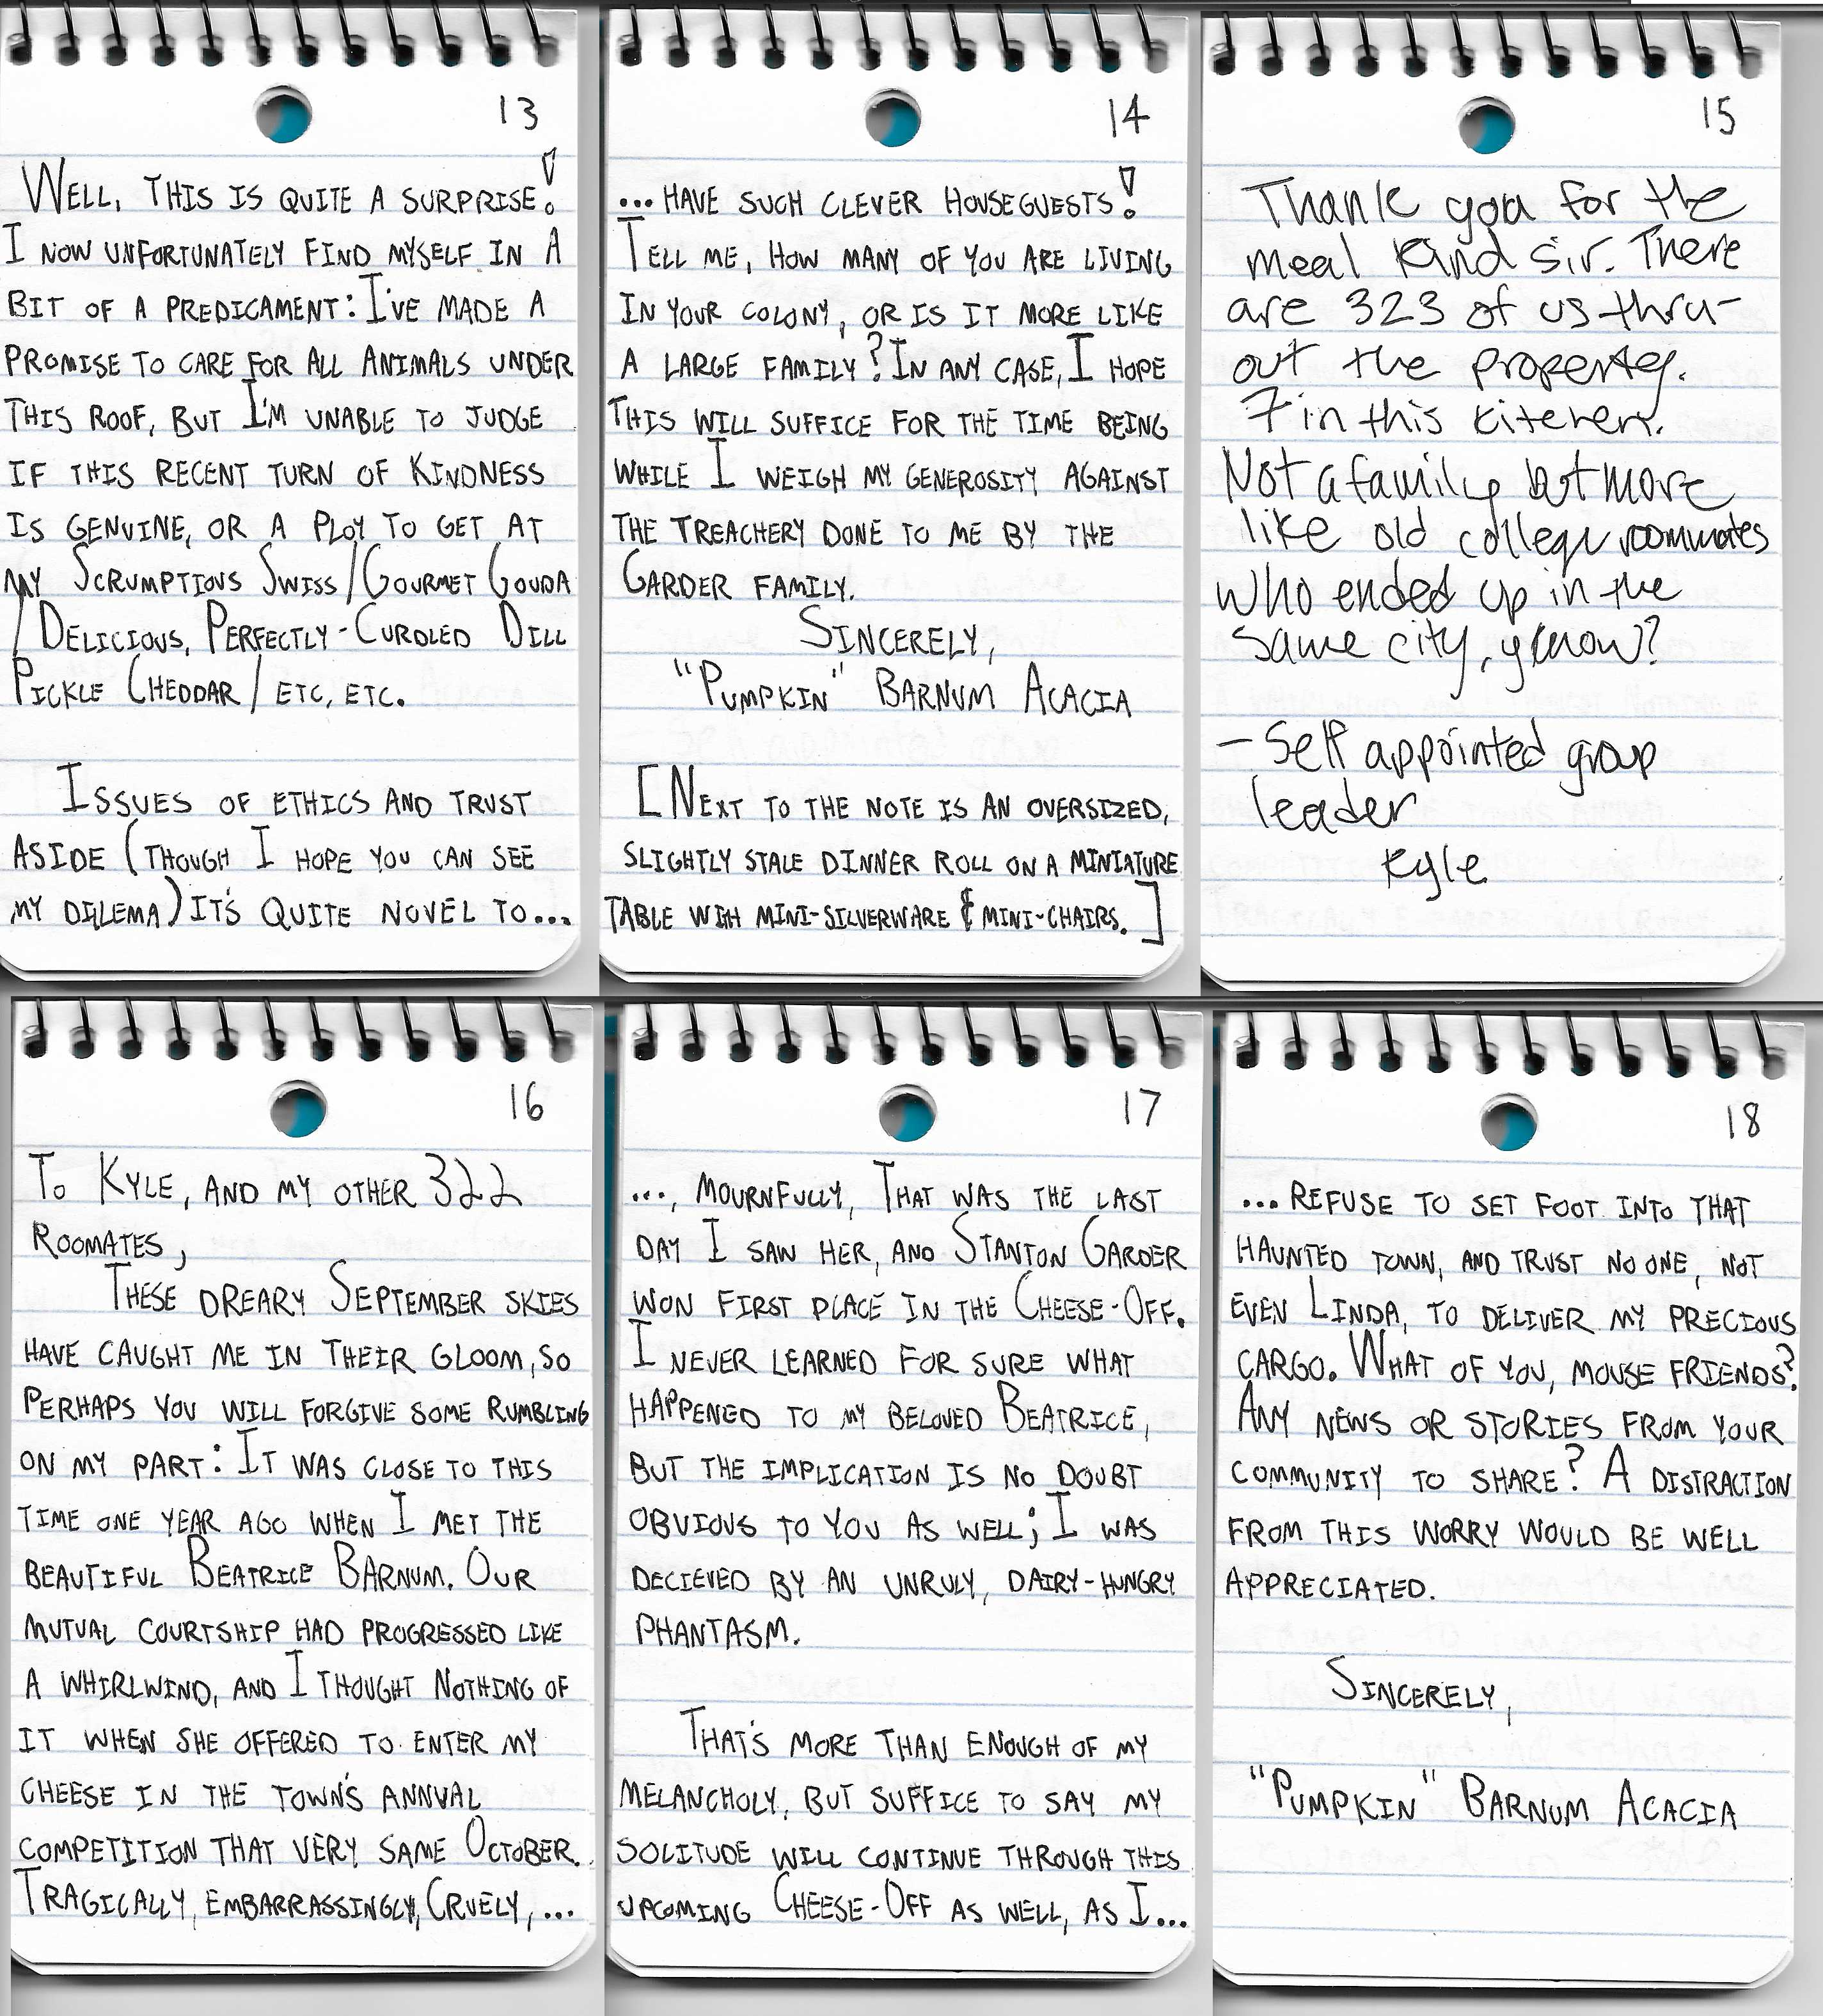 13
WELL, THIS IS QUITE A SURPRISE!
I NOW UNFORTUNATELY FIND MYSELF IN A
BIT OF A PREDICAMENT: I'VE MADE A
PROMISE TO CARE FOR ALL ANIMALS UNDER
THIS ROOF, BUT I'M UNABLE TO JUDGE
IF THIS RECENT TURN OF KINDNESS
IS GENUINE, OR A PLOY TO GET AT
MY SCRUMPTIOUS SWISS/GOURMET GOUDA
/DELICIOUS, PERFECTLY-CURDLED DILL
PICKLE CHEDDAR/ETC, ETC.
ISSUES OF ETHICS AND TRUST
ASIDE (THOUGH I HOPE YOU CAN SEE
MY DILEMA) IT'S QUITE NOVEL TO...
14
...HAVE SUCH CLEVER HOUSEGUESTS!
TELL ME, HOW MANY OF YOU ARE LIVING
IN YOUR COLONY, OR IS IT MORE LIKE
A LARGE FAMILY? IN ANY CASE, I HOPE
THIS WILL SUFFICE FOR THE TIME BEING
WHILE I WEIGH MY GENEROSITY AGAINST
THE TREACHERY DONE TO ME BY THE
GARDER FAMILY.
SINCERELY,
"PUMPKIN" BARNUM ACACIA
[NEXT TO THE NOTE IS AN OVERSIZED,
SLIGHTLY STALE DINNER ROLL ON A MINIATURE
TABLE WITH MINI-SILVERWARE & MINI-CHAIRS.]
15
Thank you for the
meal kind sir. There
are 323 of us thru-
out the property.
7 in this kitchen.
Not a family but more
like old college roommates
who ended up in the
same city, y'know?
- Self appointed group
leader
Kyle
16
TO KYLE, AND MY OTHER 322
ROOMATES,
THESE DREARY SEPTEMBER SKIES
HAVE CAUGHT ME IN THEIR GLOOM, SO
PERHAPS YOU WILL FORGIVE SOME RUMBLING
ON MY PART: IT WAS CLOSE TO THIS
TIME ONE YEAR AGO WHEN I MET THE
BEAUTIFUL BEATRICE BARNUM. OUR
MUTUAL COURTSHIP HAD PROGRESSED LIKE
A WHIRLWIND, AND I THOUGHT NOTHING OF
IT WHEN SHE OFFERED TO ENTER MY
CHEESE IN THE TOWN'S ANNUAL
COMPETITION THAT VERY SAME OCTOBER.
TRAGICALLY, EMBARRASSINGLY, CRUELY, ...
17
..., MOURNFULLY, THAT WAS THE LAST
DAY I SAW HER, AND STANTON GARDER
WON FIRST PLACE IN THE CHEESE-OFF.
I NEVER LEARNED FOR SURE WHAT
HAPPENED TO MY BELOVED BEATRICE,
BUT THE IMPLICATION IS NO DOUBT
OBVIOUS TO YOU AS WELL; I WAS
DECIEVED BY AN UNRULY, DAIRY-HUNGRY
PHANTASM.
THAT'S MORE THAN ENOUGH OF MY
MELANCHOLY, BUT SUFFICE TO SAY MY
SOLITUDE WILL CONTINUE THROUGH THIS
UPCOMING CHEESE-OFF AS WELL, AS I...
18
...REFUSE TO SET FOOT INTO THAT
HAUNTED TOWN, AND TRUST NO ONE, NOT
EVEN LINDA, TO DELIVER MY PRECIOUS
CARGO. WHAT OF YOU, MOUSE FRIENDS?
ANY NEWS OR STORIES FROM YOUR
COMMUNITY TO SHARE? A DISTRACTION
FROM THIS WORRY WOULD BE WELL
APPRECIATED.
SINCERELY,
"PUMPKIN" BARNUM ACACIA